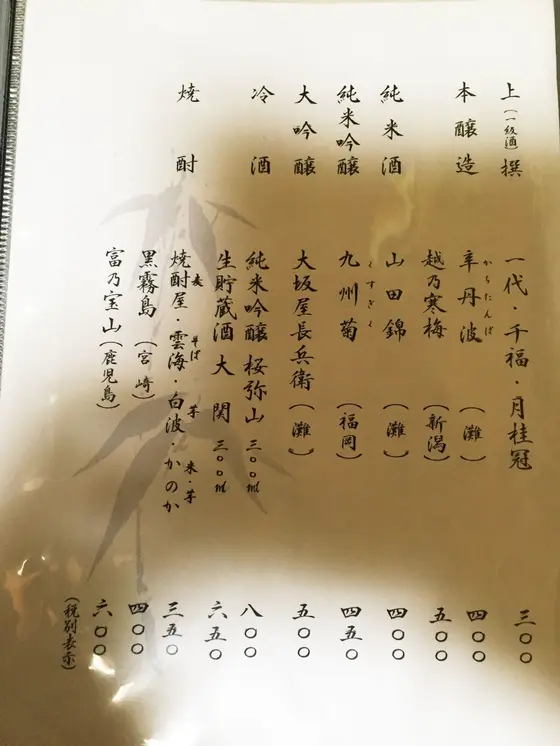 上(一級酒)撰 一代・千福・月桂冠 三〇〇
本醸造 辛丹波(灘) 四〇〇
からたんば
越乃寒梅(新潟) 五〇〇
純米酒 山田錦(灘) 四〇〇
純米吟醸 九州菊(福岡) 四五〇
くすぎく
大吟醸 大坂屋長兵衛(灘) 五〇〇
冷酒 純米吟醸 桜弥山 三〇〇ml 八〇〇
生貯蔵酒 大関 三〇〇ml 六五〇
焼酎 焼酎屋・雲海・白波・かのか 三五〇
麦 そば 芋 米・芋
黒霧島(宮崎) 四〇〇
富乃宝山(鹿児島) 六〇〇
(税別表示)